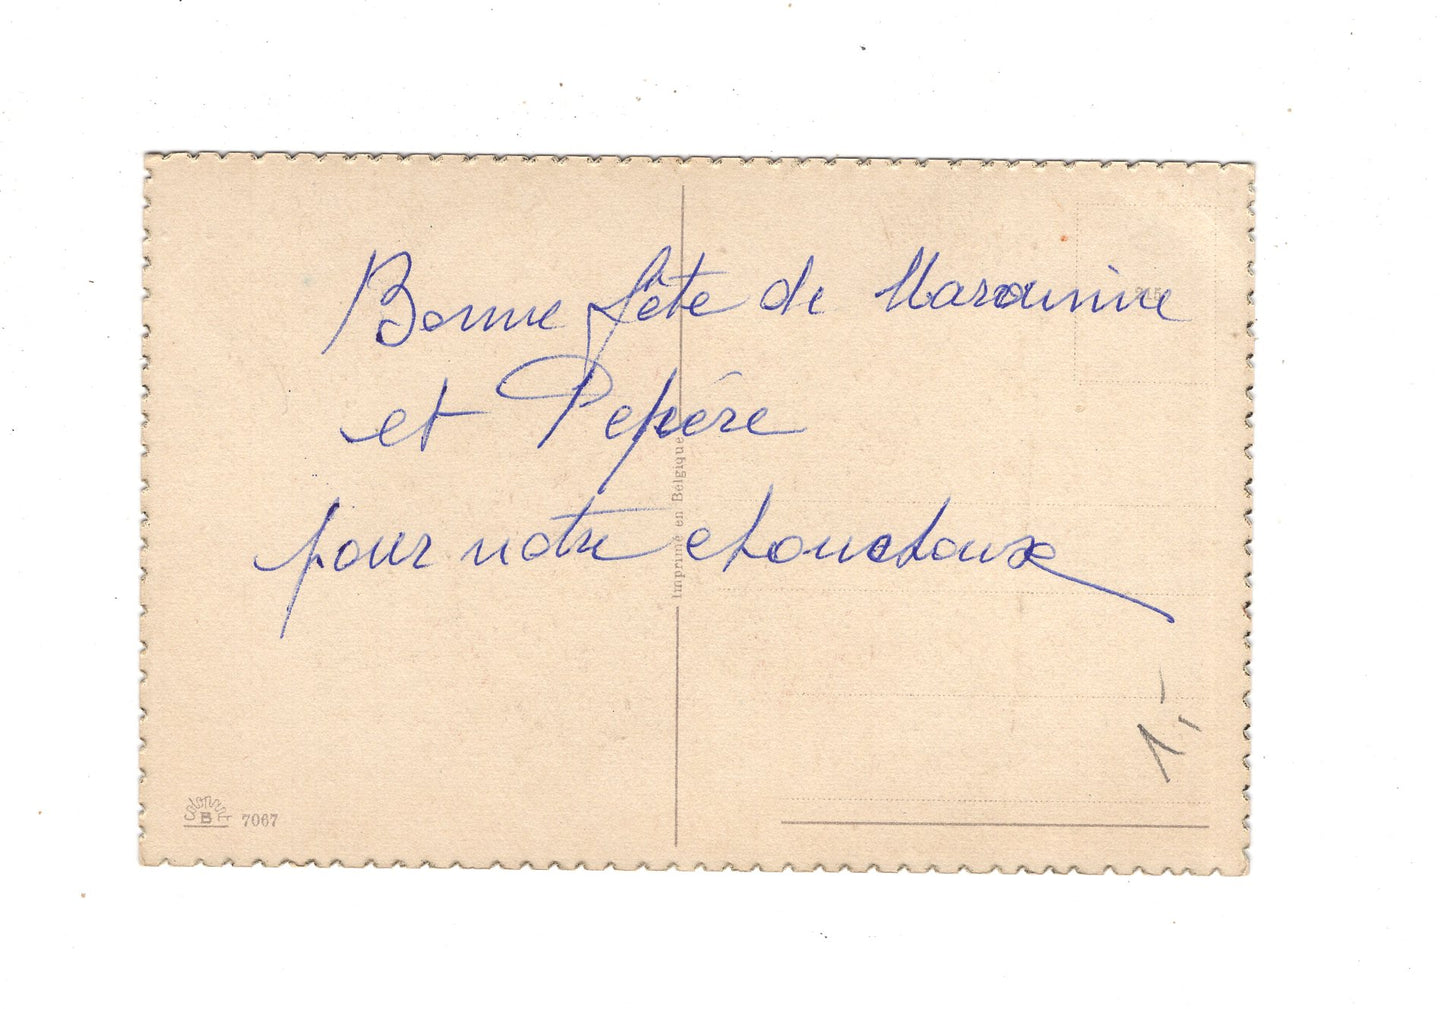 Bonne fête de Marainne
et Pepère
pour notre chouchoux
Imprimé en Belgique
215
1,-
Colorprint
B
7067